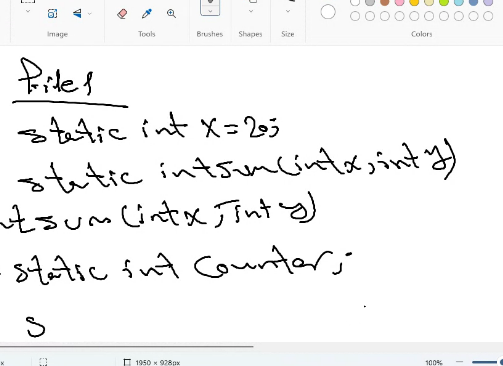 Image
Tools
Brushes
Shapes
Size
Colors
File1
static int x=20;
static int sum(int x, int y)
nt sum(int x, int y)
static int counter;
S
1950 × 928px
100%